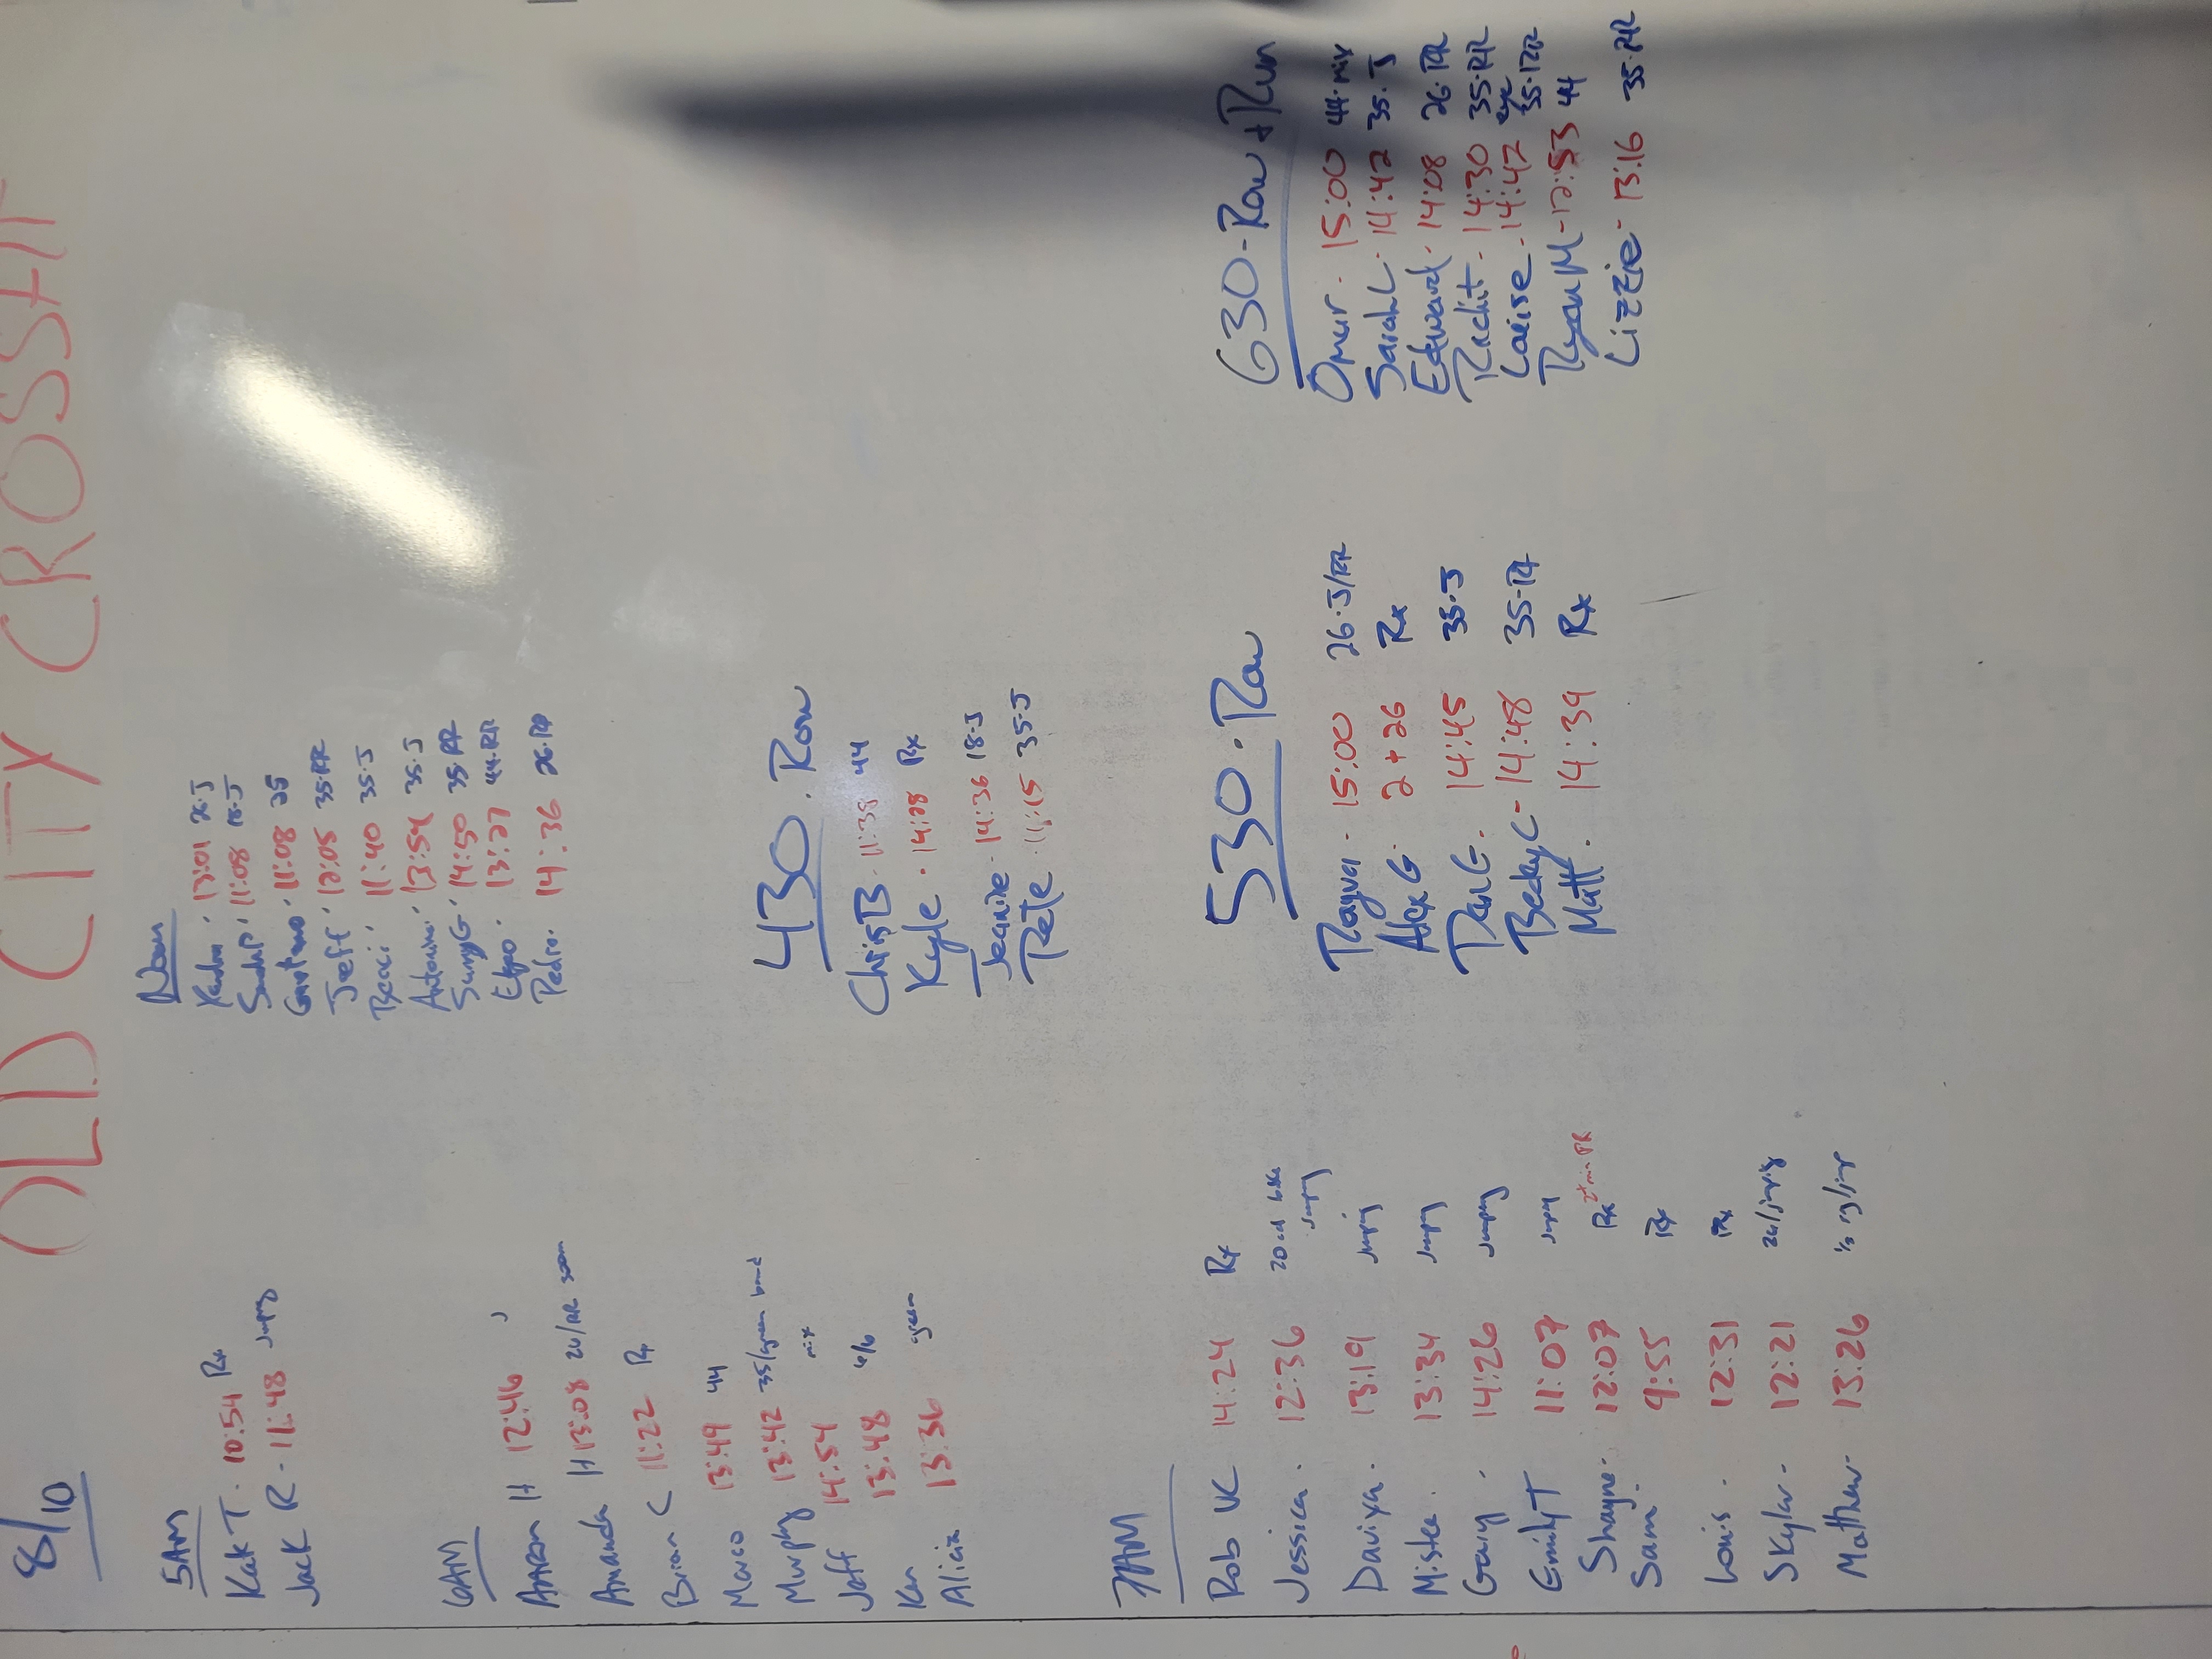 OLD CITY CROSSFIT
8/10
5AM
Kat T. 10:54 Rx
Jack R - 11:48
6AM
Aaron H 12:46 J
Amanda H 13:08
Brian C 11:22 Rx
Marco 13:49 44
Murphy 13:42 35/green band
Jeff 14:54 mix
Ken 13:48
Alicia 13:36 green
7AM
Rob VK 14:24 Rx
Jessica. 12:36
Daviya. 13:19
Mistee. 13:34
Gary. 14:26
Emily T 11:07
Shayne. 12:07 Rx
Sam. 9:55 Rx
Louis. 12:31 Rx
Skylar. 12:21
Mathew. 13:26
Noon
13:01 26.J
11:08 18.J
11:08 35
Jeff. 12:05 35.RR
11:40 35.J
13:54 35.J
14:50 35.RR
13:27 44.RR
Pedro. 14:36 26.RR
430. Row
Chris B. 11:38 44
Kyle. 14:28 Rx
Jeanine. 14:36 18.J
Pete. 11:15 35.J
530. Row
15:00 26.J/RR
Alex G. 2+26 Rx
Dan G. 14:45 35.J
Becky C - 14:48 35-RR
Matt. 14:39 Rx
630-Row + Run
Omar. 15:00 44.mix
Sarah L. 14:42 35.J
Edward. 14:08 26.RR
Rachit. 14:30 35.RR
14:47 35.RR
Ryan M - 12:53 44
Lizzie - 13:16 35.RR